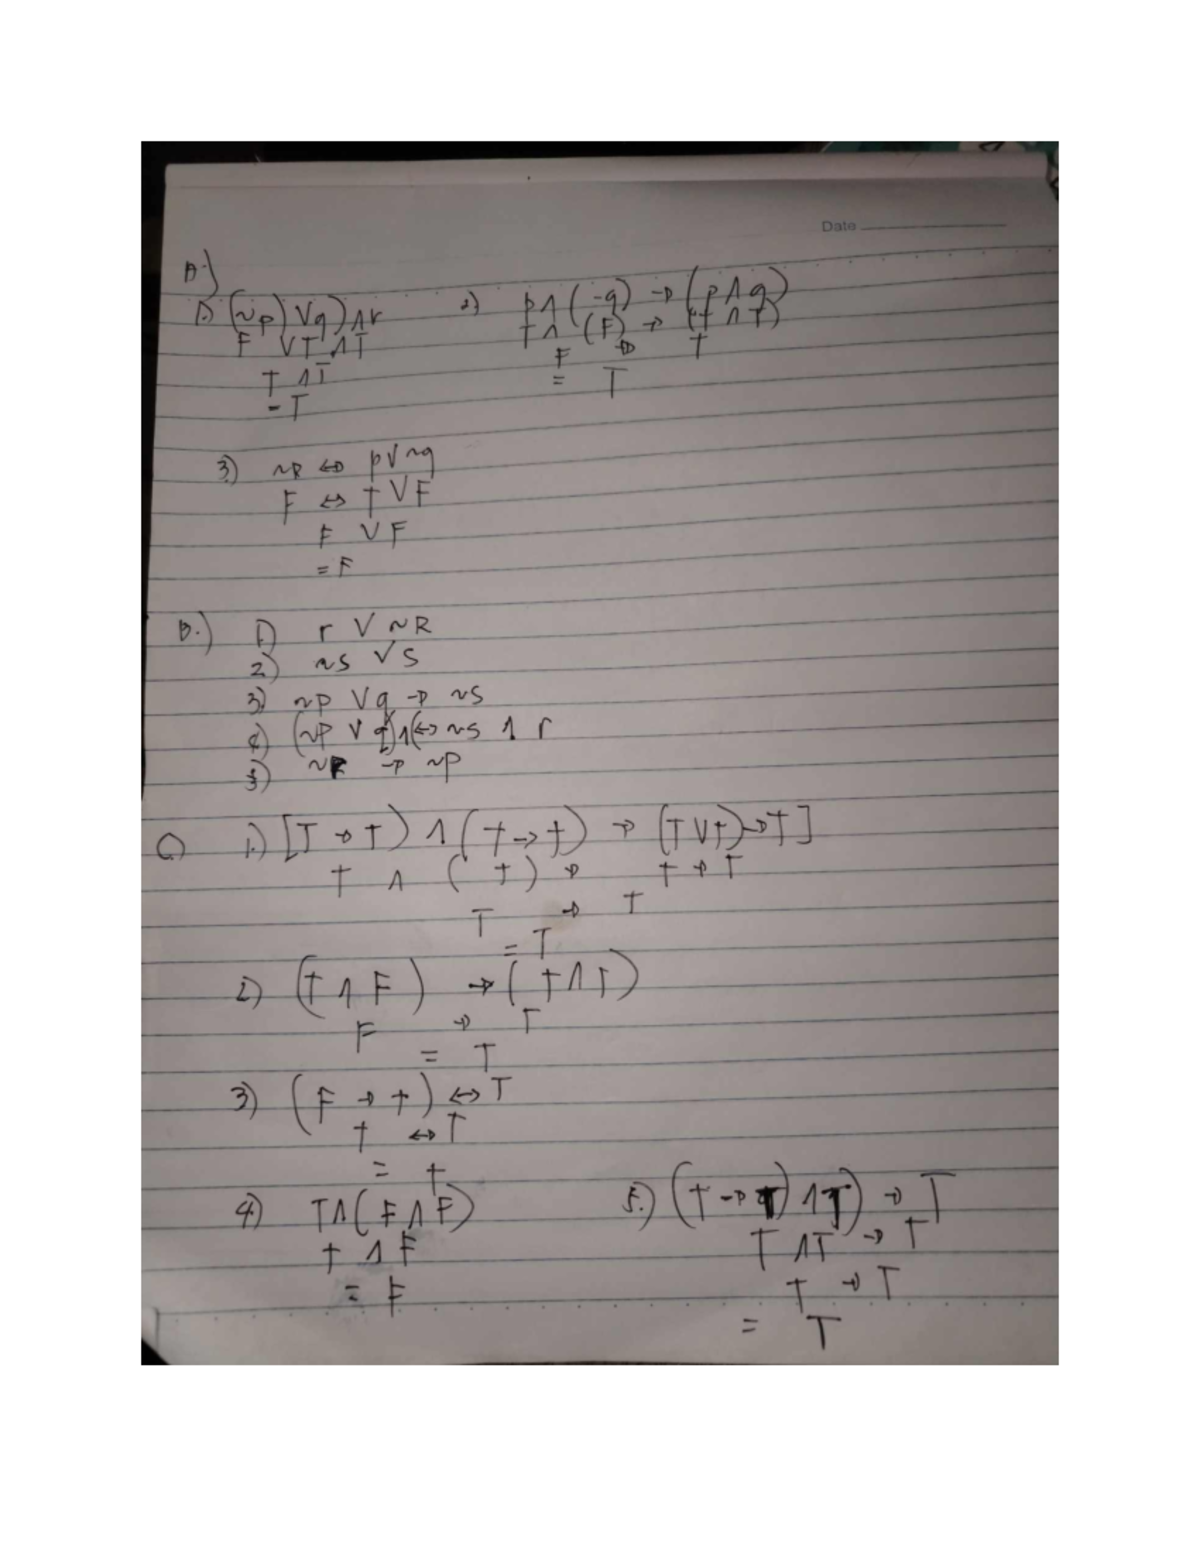 Date
A.)
1) (~p) V q) ∧ r
F V T ∧ T
T ∧ T
- T
2) p ∧ (-q) → (p ∧ q)
T ∧ (F) → (T ∧ T)
F → T
= T
3.) ~R ↔ p V ~q
F ↔ T V F
F V F
= F
B.) 1) r V ~R
2) ~S V S
3) ~p V q → ~S
4) (~P V q) ∧ (↔ ~S ∧ r
5) ~R → ~P
C.) 1.) [T → T) ∧ (T → T) → (T V T) → T]
T ∧ (T) → T → T
T → T
= T
2) (T ∧ F) → (T ∧ T)
F → T
= T
3) (F → T) ↔ T
T ↔ T
= T
4) T ∧ (F ∧ F)
T ∧ F
= F
5.) (T → T) ∧ T) → T
T ∧ T → T
T → T
= T